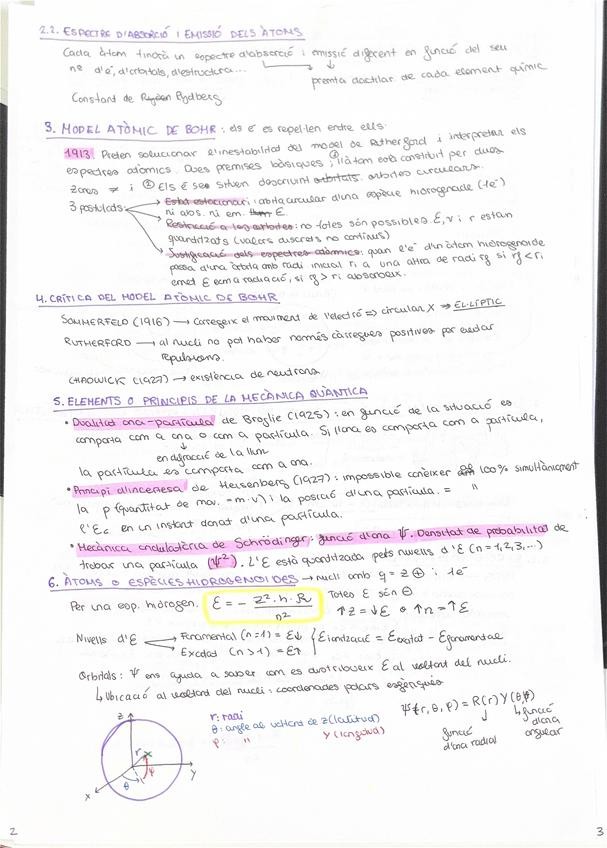 2.2. ESPECTRE D'ABSORCIÓ I EMISSIÓ DELS ÀTOMS
Cada àtom tindrà un espectre d'absorció i emissió diferent en funció del seu
nº d'e⁻, d'orbitals, d'estructura...
premta dactilar de cada element químic
Constant de Rydberg.
3. MODEL ATÒMIC DE BOHR: els e⁻ es repel·len entre ells.
1913 Preten solucionar l'inestabilitat del model de Rutherford i interpretar els
espectres atòmics. Dues premises bàsiques; ① l'àtom està constituit per dues
zones ≠ i ② Els e⁻ se situen descrivint orbitals orbites circulars.
3 postulats
Estat estacionari: òrbita circular d'una espècie hidrogenoide (1e⁻)
ni abs. ni em. E.
Restricció a les òrbites: no totes són possibles E, v i r estan
quantitzats (valors discrets no continus)
Justificació dels espectres atòmics: quan l'e⁻ d'un àtom hidrogenoide
passa d'una òrbita amb radi inicial ri a una altra de radi rf si rf < ri
emet E com a radiació, si rf > ri absorbeix.
4. CRÍTICA DEL MODEL ATÒMIC DE BOHR
SOMMERFELD (1916) → Corregeix el moviment de l'electró ⇒ circular X ⇒ EL·LÍPTIC
RUTHERFORD → al nucli no pot haber només càrregues positives per evitar
repulsions.
CHADWICK (1927) → existència de neutrons.
5. ELEMENTS O PRINCIPIS DE LA MECÀNICA QUÀNTICA
• Dualitat ona-partícula de Broglie (1925): en funció de la situació es
comporta com a ona o com a partícula. Si l'ona es comporta com a partícula,
en difracció de la llum
la partícula es comporta com a ona.
• Principi d'incertesa de Heisenberg (1927): impossible conèixer 100% simultàniament
la p (quantitat de mov. = m·v) i la posició d'una partícula. = "
l'Ec en un instant donat d'una partícula.
• Mecànica ondulatòria de Schrödinger: funció d'ona Ψ. Densitat de probabilitat de
trobar una partícula (Ψ²). L'E està quantitzada pels nivells d'E (n=1,2,3,...)
6. ÀTOMS O ESPÈCIES HIDROGENOIDES → nucli amb q = z ⊕ i 1e⁻
Per una esp. hidrogen. E = - Z²·h·R / n² Totes E són ⊖
↑Z = ↓E o ↑n = ↑E
Nivells d'E
Fonamental (n=1) = E↓
Excitat (n>1) = E↑
Eionització = Eexcitat - Efonamental
Orbitals: Ψ ens ajuda a saber com es distribueix E al voltant del nucli.
↳ Ubicació al voltant del nucli: coordenades polars esfèriques
Ψ(r, θ, φ) = R(r) Y(θ,φ)
funció d'ona radial
funció d'ona angular
r: radi
θ: angle al voltant de z (latitud)
φ: " y (longitud)
z
r
φ
θ
x
y
2
3